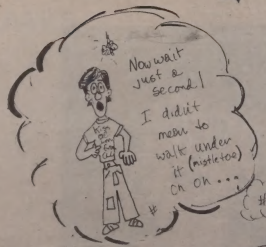 Now wait
just a
second!
I didn't
mean to
walk under
it (mistletoe)
oh oh...